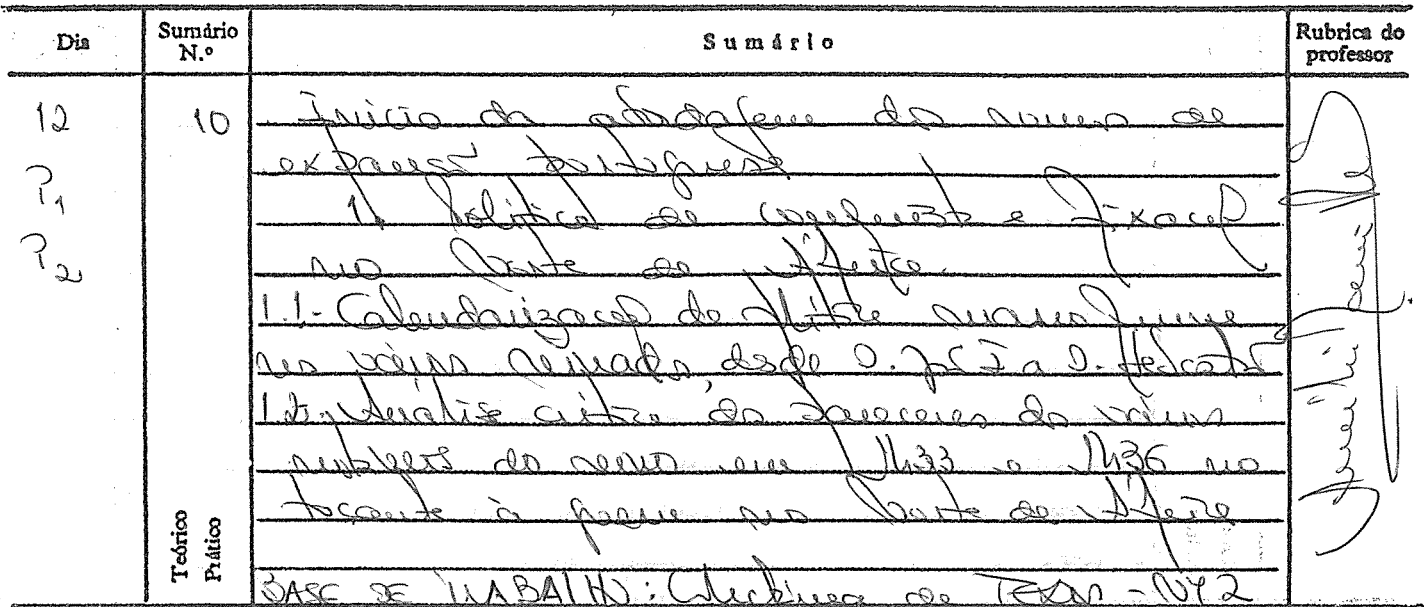 Dia Sumário N.º Sumário Rubrica do professor
12 10 Início da abordagem dos rumos de
P1 expansão portuguesa
P2 1. Política de conquista e fixação
no Norte de África.
1.1- Calendarização da
nos vários reinados, desde D. João I a D. Sebastião
1.2- Análise crítica dos pareceres de vários
do reino em 1433 e 1436 no
tocante à guerra no Norte de África
Teórico
Prático
BASE DE TRABALHO: Colectânea de Textos - Nº 2